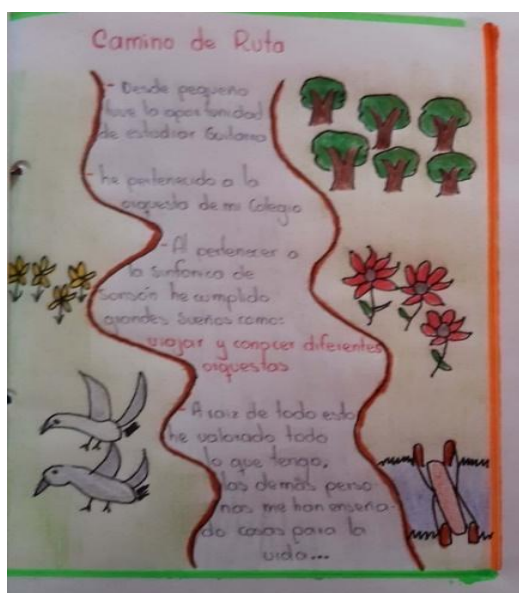 Camino de Ruta
- Desde pequeño
tuve la oportunidad
de estudiar Guitarra
- he pertenecido a la
orquesta de mi Colegio
- Al pertenecer a
la sinfonica de
sonsón he cumplido
grandes sueños como:
viajar y conocer diferentes
orquestas
- A raiz de todo esto
he valorado todo
lo que tengo,
las demás perso
nas me han enseña-
do cosas para la
vida...